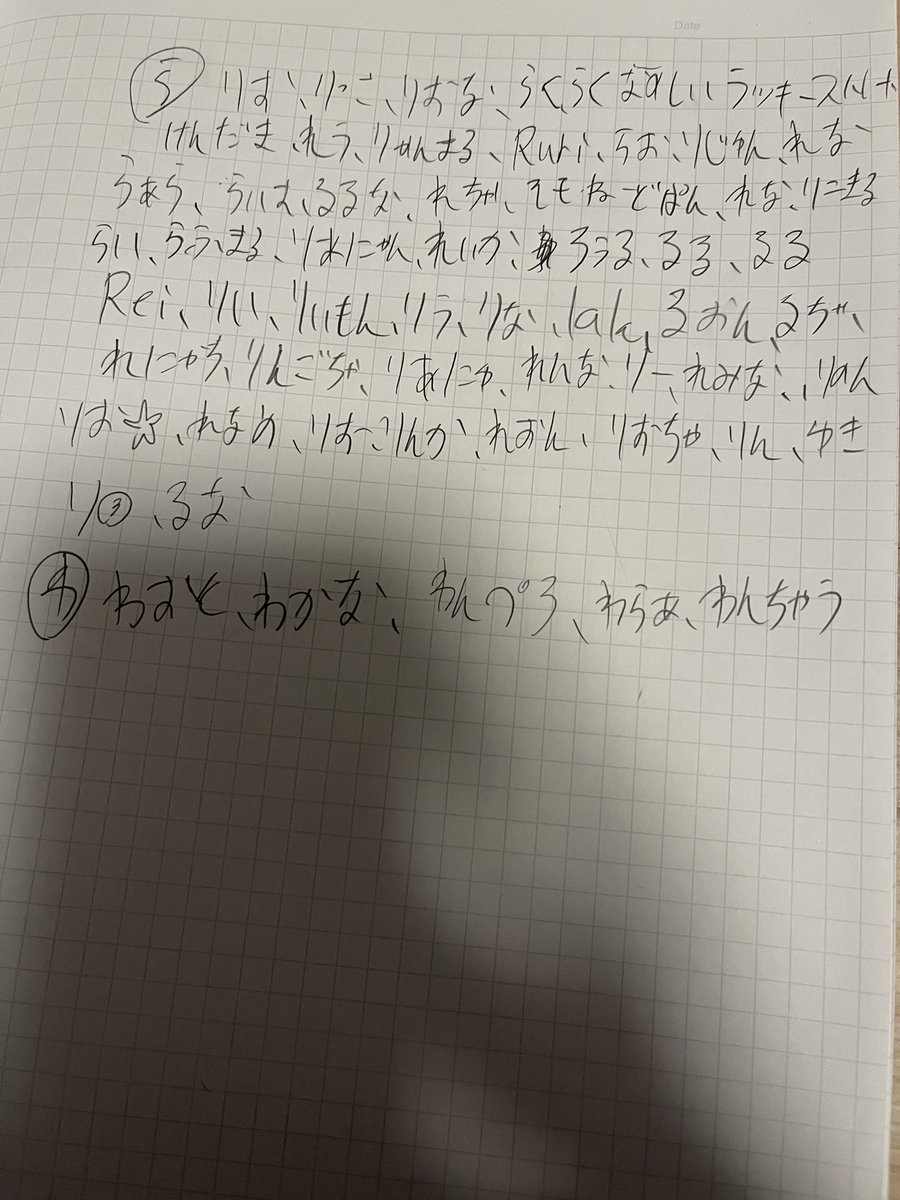 Date
ら りお、りこ、りおな、らくらく しい ラッキー
けんだま、れう、りゃんまる、Ruri、らお、りじゅん、れな
らぁら、らいは、るるな、れちゃ、 どぱん、れな、りこまる
らい、らぶまる、りおにゃん、れいか、ろうる、るる、るる
Rei、りい、りいもん、りう、りな、lak、るおん、るちゃ、
れにゃち、りんごちゃ、りあにゃ、れんな、りー、れみな、りおん
りお☆、れなめ、りおこりんか、れおん、りおちゃ、りん、ゆき
り③、るな
わ わすと、わかな、わんぺろ、わらぁ、わんちゃう